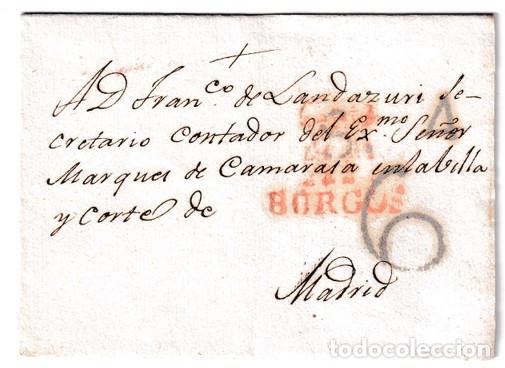 +
A D Fran.co de Landazuri Se-
cretario Contador del Ex.mo Señor
Marques de Camarasa en la billa
y Corte de
Madrid
BURGOS
6
todocoleccion
todocoleccion.net